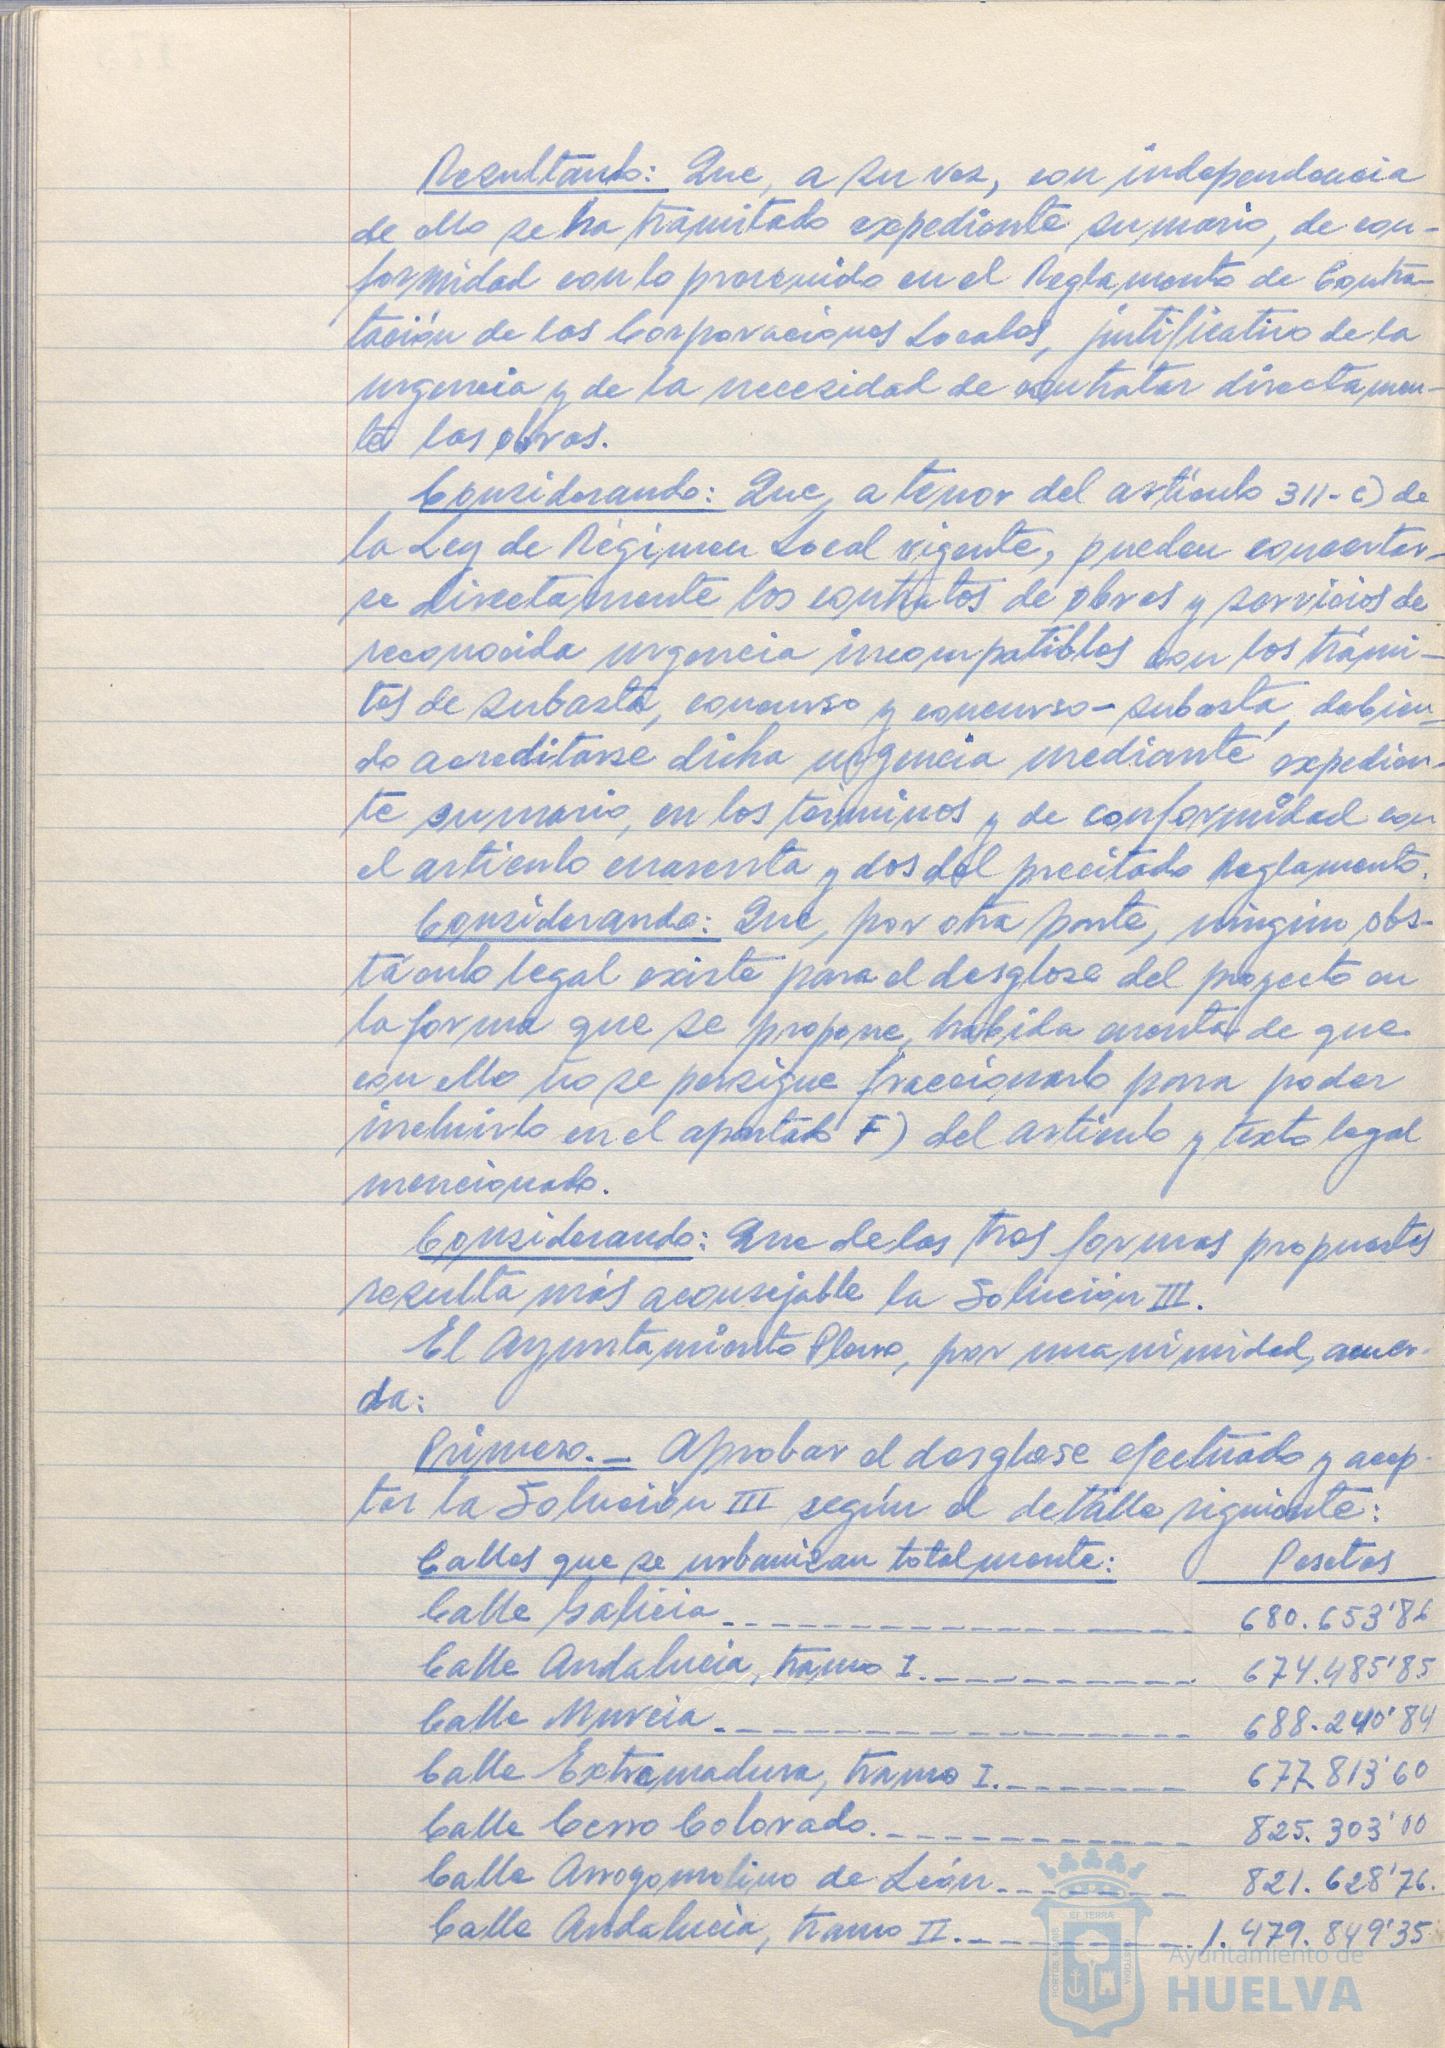 Resultando: Que, a su vez, con independencia
de ello se ha tramitado expediente sumario, de con-
formidad con lo prevenido en el Reglamento de Contra-
tación de las Corporaciones Locales, justificativo de la
urgencia y de la necesidad de contratar directamen-
te las obras.
Considerando: Que, a tenor del artículo 311-c) de
la Ley de Régimen Local vigente, pueden concertar-
se directamente los contratos de obras y servicios de
reconocida urgencia incompatibles con los trámi-
tes de subasta, concurso y concurso-subasta, debien-
do acreditarse dicha urgencia mediante expedien-
te sumario, en los términos y de conformidad con
el artículo cuarenta y dos del precitado Reglamento.
Considerando: Que, por otra parte, ningún obs-
táculo legal existe para el desglose del proyecto en
la forma que se propone, habida cuenta de que
con ello no se persigue fraccionarlo para poder
incluirlo en el apartado F) del artículo y texto legal
mencionado.
Considerando: Que de las tres formas propuestas
resulta más aconsejable la Solución III.
El Ayuntamiento Pleno, por unanimidad, acuer-
da:
Primero.- Aprobar el desglose efectuado y acep-
tar la Solución III según el detalle siguiente:
Calles que se urbanizan totalmente: Pesetas
Calle Galicia 680.653'86
Calle Andalucía, tramo I. 674.485'85
Calle Murcia 688.240'84
Calle Extremadura, tramo I. 677.813'60
Calle Cerro Colorado. 825.303'00
Calle Arrogomolino de León 821.628'76.
Calle Andalucía, tramo II. 1.479.849'35
Ayuntamiento de
HUELVA